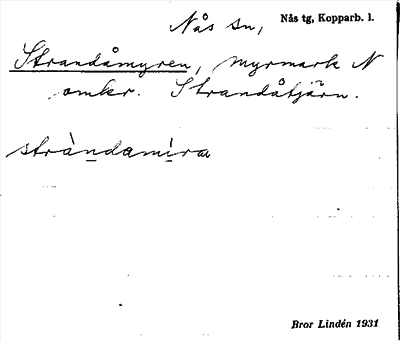 Nås sn, Nås tg, Kopparb. l.
Strandåmyren, myrmark N
omkr. Strandåtjärn.
stràndamìran
Bror Lindén 1931